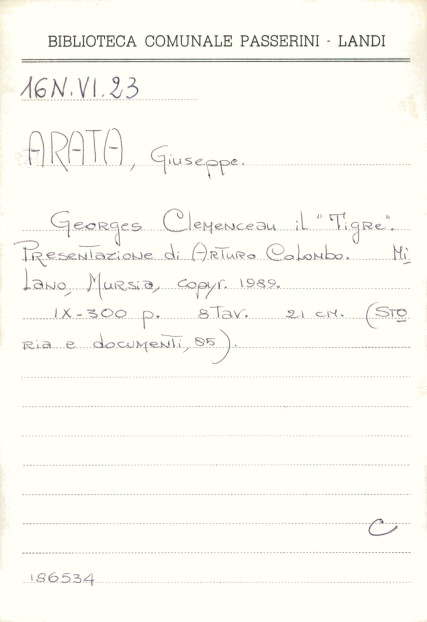 BIBLIOTECA COMUNALE PASSERINI - LANDI
16N.VI.23
ARATA, Giuseppe.
Georges Clemenceau il "Tigre".
Presentazione di Arturo Colombo. Mi
lano, Mursia, copyr. 1989.
IX-300 p. 8 Tav. 21 cm. (Sto
ria e documenti, 85).
C
186534